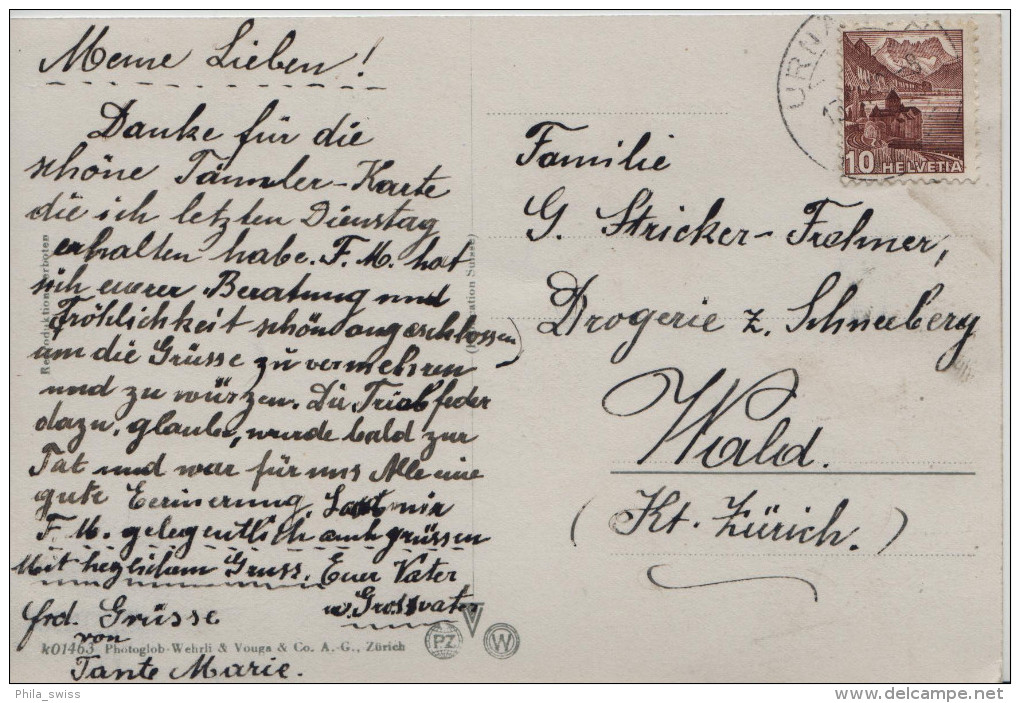 Meine Lieben!
Danke für die
schöne Tämmler-Karte
die ich letzten Dienstag
erhalten habe. F. M. hat
sich eurer Beratung und
Fröhlichkeit schön angeschlossen
um die Grüsse zu vermehren
und zu würzen. Die Triebfeder
dazu, glaube, wurde bald zur
Tat und war für uns Alle eine
gute Eerinerung. Lasst mir
F. M. gelegentlich auch grüssen
Mit herzlichem Gruss. Euer Vater
u. Grossvater
frd. Grüsse
von
Tante Marie.
k01463 Photoglob-Wehrli & Vouga & Co. A.-G., Zürich
Reproduktion verboten
PZ
W
URN
10 HELVETIA
Familie
G. Stricker-Frehner,
Drogerie z. Schneeberg
Wald.
(Kt. Zürich.)
Phila_swiss
delcampe.net